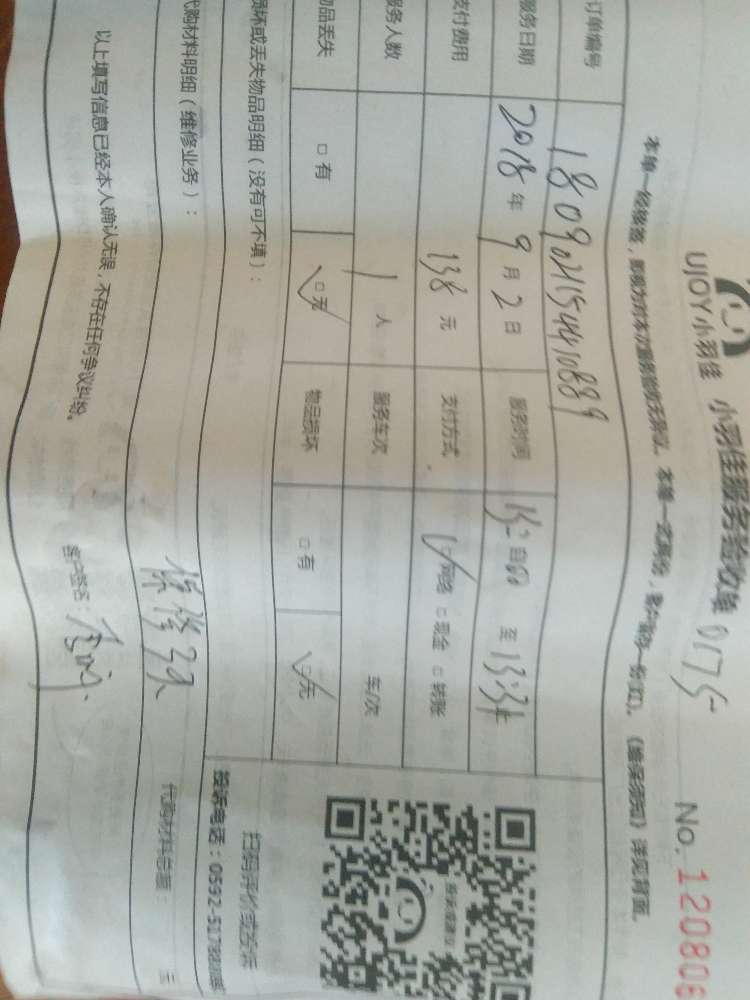 UJOY小羽佳 小羽佳服务验收单 0175
No. 120806
本单一经核签，即视为对本次服务验收无异议。本单一式两份，客户留存一份(红)。《维保须知》详见背面。
订单编号 180902154410889
服务日期 2018年9月2日 服务时间 至
支付费用 138元 支付方式 网络 现金 转账
服务人数 1人 服务车次 车/次
物品丢失 有 无 物品损坏 有 无
损坏或丢失物品明细（没有可不填）：
扫码评价或投诉
投诉电话：0592-5178
代购材料明细（维修业务）：
代购材料总额： 元
以上填写信息已经本人确认无误，不存在任何争议纠纷。 客户签名：